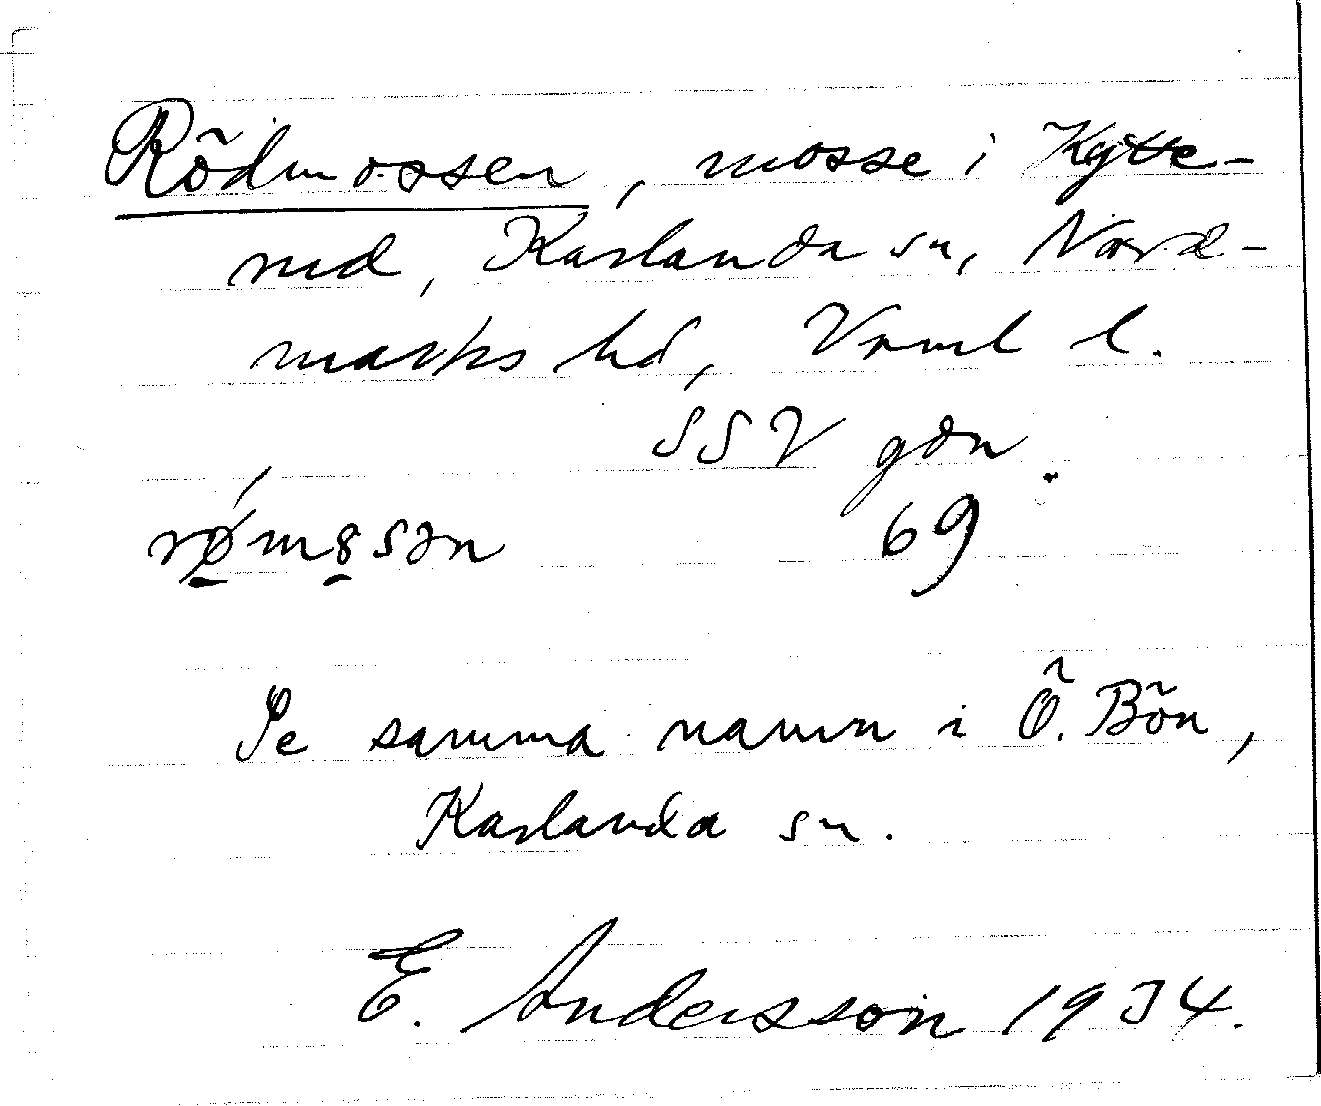 Rödmossen, mosse i Kytte-
rud, Karlanda sn, Nord-
marks hd, Värml l.
SSV gdn.
rǿ̱mo̱sən 69
Se samma namn i Ö. Bön,
Karlanda sn.
E. Andersson 1934.